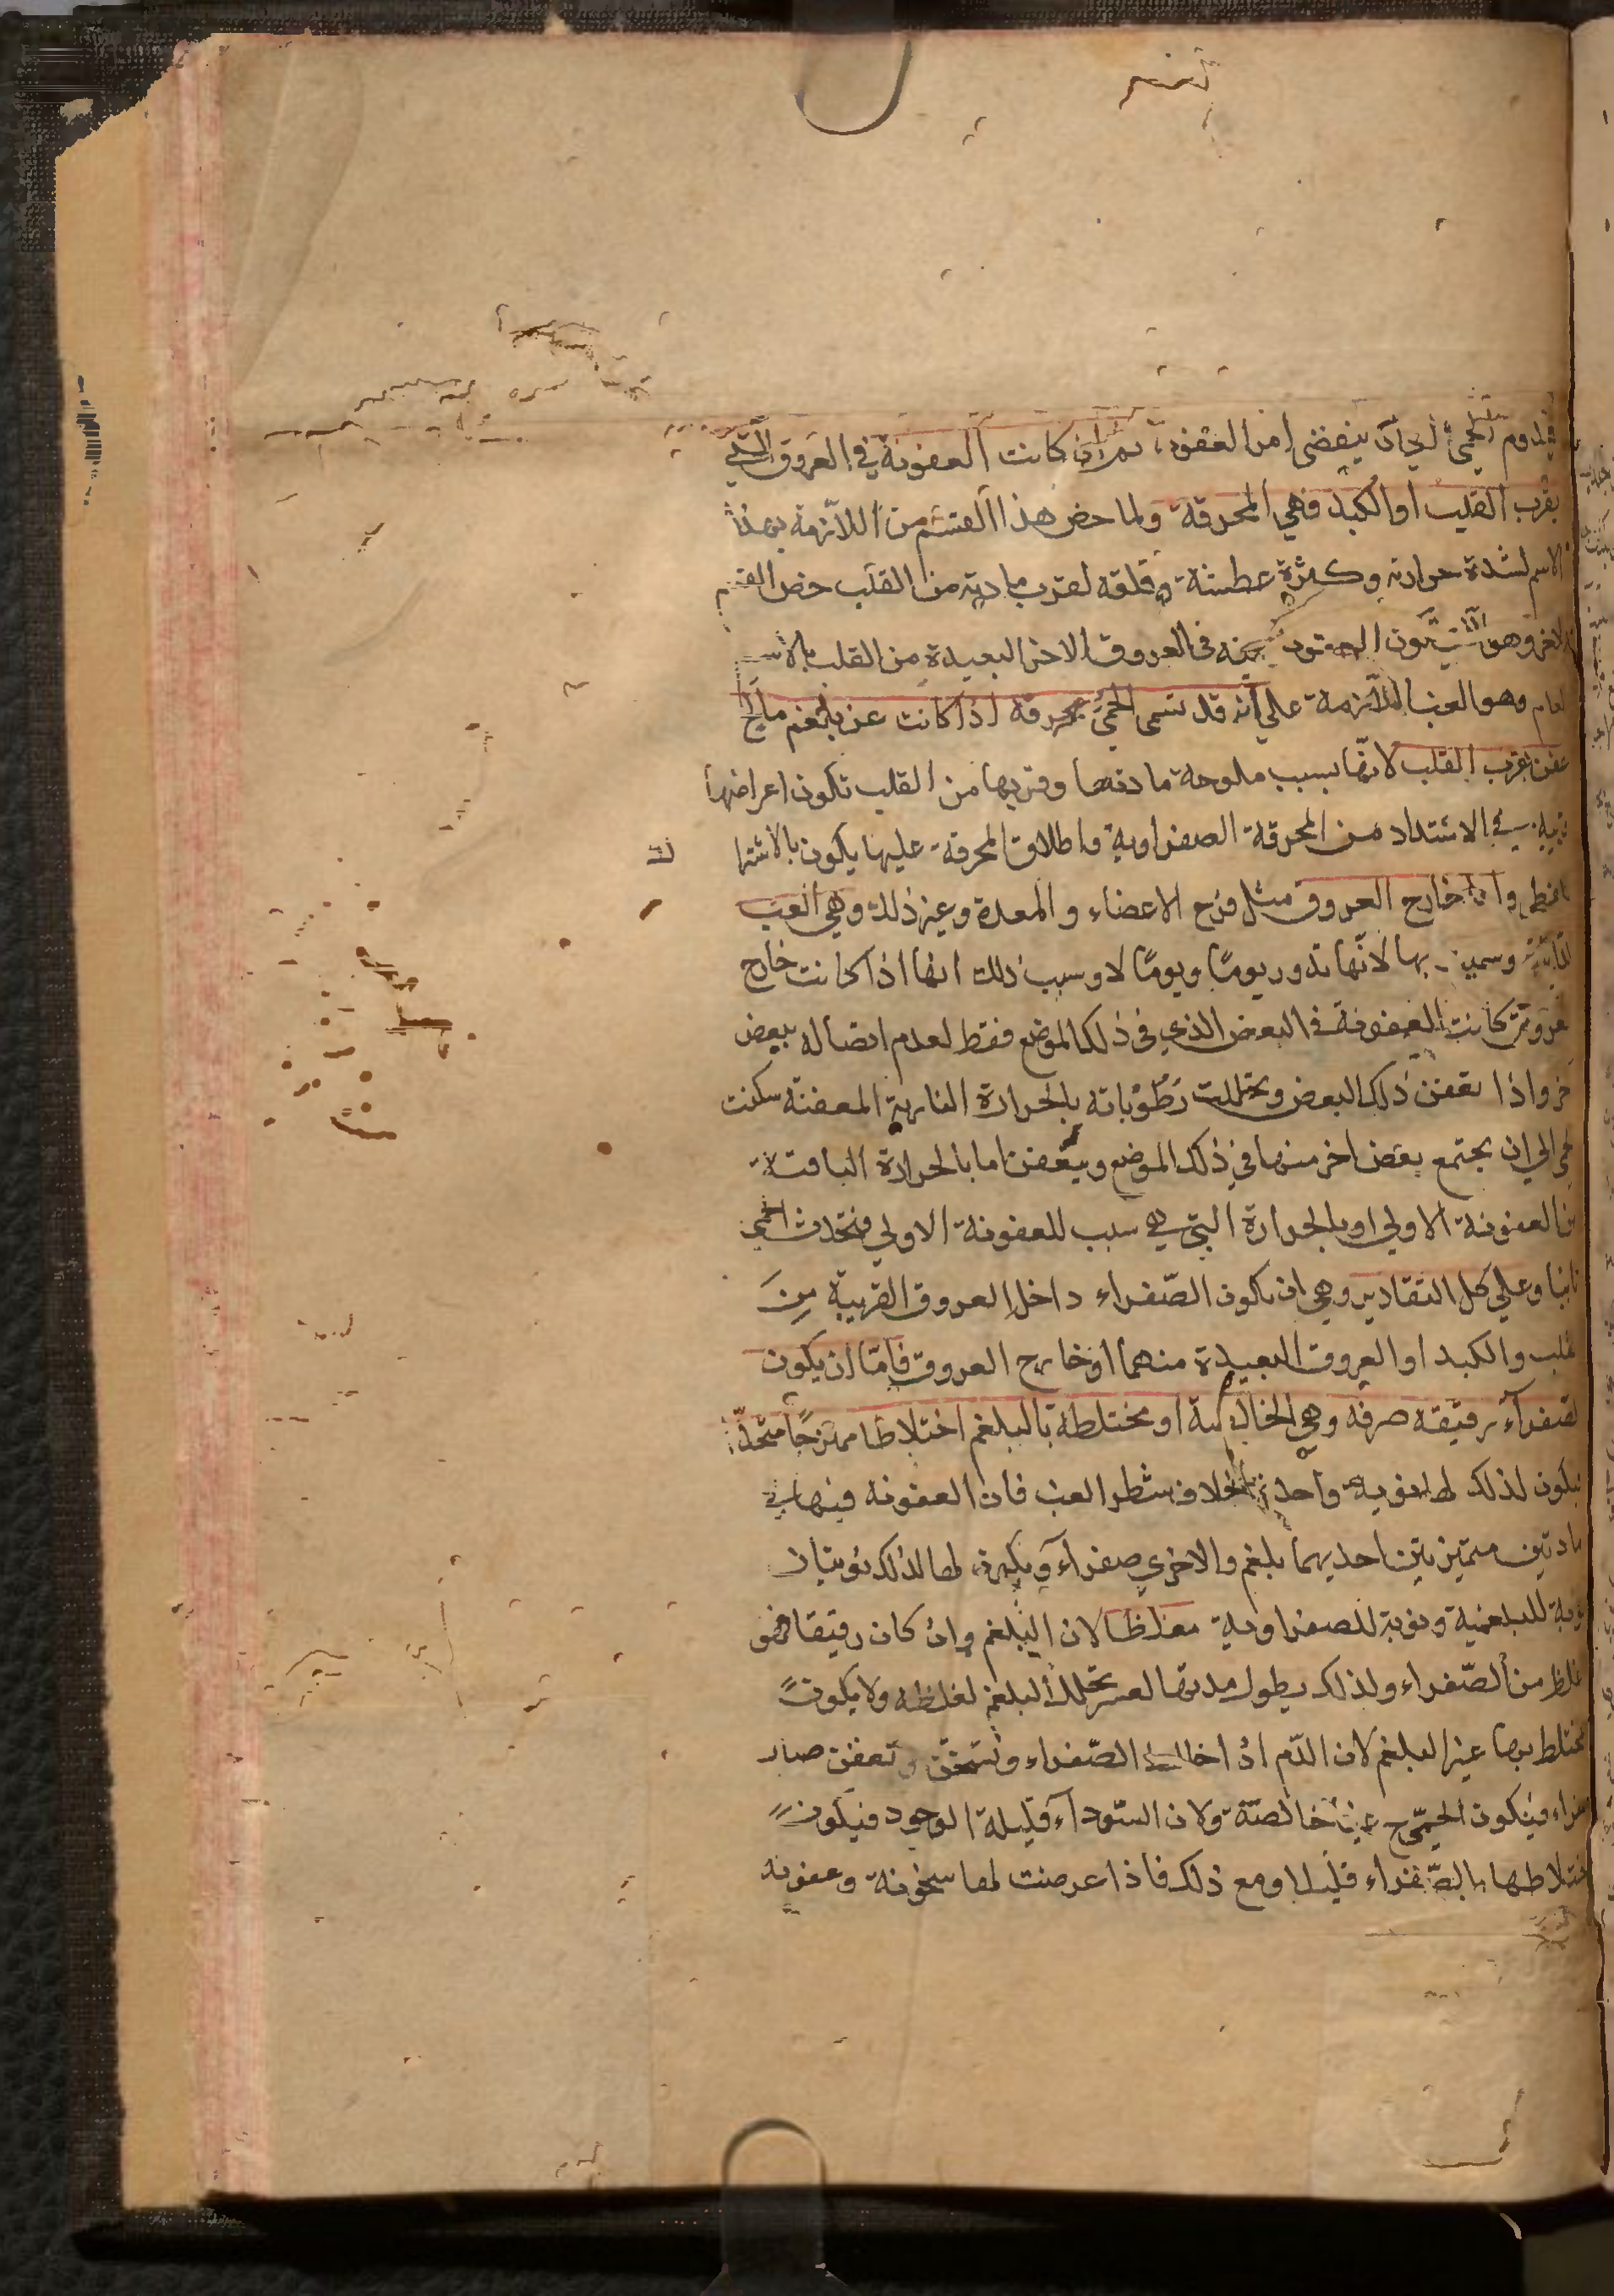 فيدوم الحمى الى ان ينقضي امر العفونة ثم ان كانت العفونة في العروق التي
بقرب القلب او الكبد فهي المحرقة ولما خص هذا القسم من اللازمة بهذا
الاسم لشدة حرارته وكثرة عطشه وقلقه لقرب مادته من القلب خص القسم
الاخر وهو ان يكون العفونة في العروق الاخر البعيدة من القلب بالاسم
العام وهو الغب اللازمة على انه قد تسمى الحمى محرقة اذا كانت عن بلغم مالح
عفن بقرب القلب لانها بسبب ملوحة مادتها وقربها من القلب تكون اعراضها
قريبة في الاشتداد من المحرقة الصفراوية واطلاق المحرقة عليها يكون بالاشترا
اللفظي واما خارج العروق مثل فرج الاعضاء والمعدة وغير ذلك وهي الغب
الدايرة وسميت بها لانها تدور يومًا ويومًا لا وسبب ذلك انها اذا كانت خارج
العروق كانت العفونة في البعض الذي في ذلك الموضع فقط لعدم اتصاله ببعض
اخر واذا تعفن ذلك البعض وتحللت رطوباته بالحرارة النارية المعفنة سكنت
الحمى الي ان يجتمع بعض اخر منها في ذلك الموضع ويتعفن اما بالحرارة الباقية
من العفونة الاولي او بالحرارة التي هي سبب للعفونة الاولي فتحدث الحمى
ثانيا وعلي كل التقادير وهي ان يكون الصفراء داخل العروق القريبة من
القلب والكبد او العروق البعيدة منهما او خارج العروق فامّا ان يكون
الصفرآء رقيقة صرفة وهي الخالصة او مختلطة بالبلغم اختلاطا ممتزجًا متحدًا
فيكون لذلك لها نوبة واحدة بخلاف شطر الغب فان العفونة فيها في
مادتين متميزتين احديهما بلغم والاخرى صفرآء ويكون لها لذلك نوبتان
نوبة للبلغمية ونوبة للصفراوية مغلظا لان البلغم وان كان رقيقا فهو
اغلظ من الصّفراء ولذلك يطول مدتها لعسر تحلل البلغم لغلظه ولا يكون
المختلط بها غير البلغم لان الدّم اذا خالط الصّفراء وتسخن وتعفن صار
صفراء فيكون الحمّى غبا خالصة ولان السّودآء قليلة الوجود فيكون
اختلاطها بالصّفراء قليلا ومع ذلك فاذا عرضت لها سخونة وعفونة